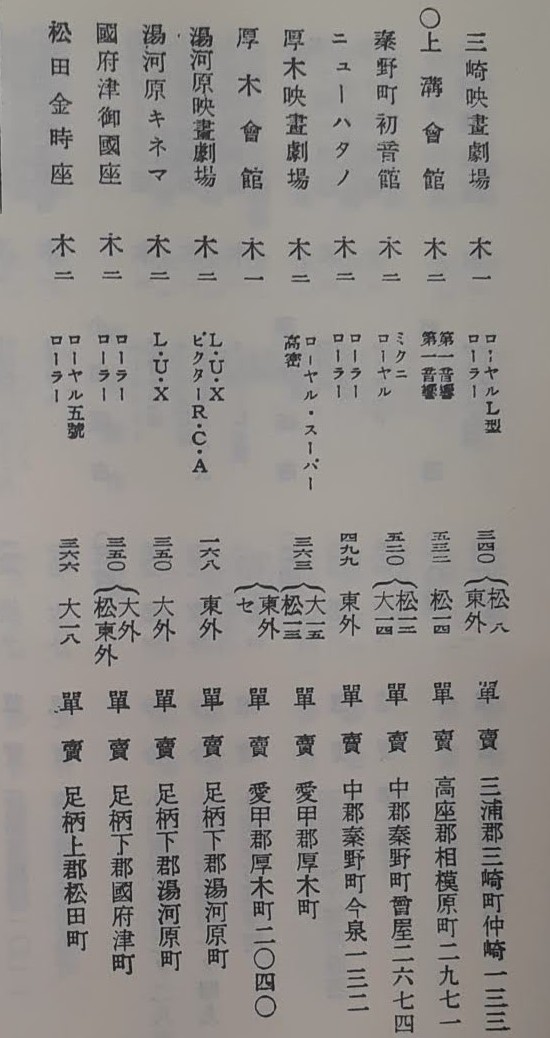 三崎映畫劇場 木一 ローヤルL型 ローラー 三四〇 松八 東外 單賣 三浦郡三崎町仲崎一三三
〇上溝會館 木二 第一音響 第一音響 五三二 松一四 單賣 高座郡相模原町二九七一
秦野町初音館 木二 ミクニ ローヤル 五二〇 松一三 大一四 單賣 中郡秦野町曾屋二六七四
ニューハタノ 木二 ローラー ローラー 四九九 東外 單賣 中郡秦野町今泉一三二
厚木映畫劇場 木二 ローヤル・スーパー 高密 三六三 大一五 松一三 單賣 愛甲郡厚木町
厚木會館 木一 東外 セ 單賣 愛甲郡厚木町二〇四〇
湯河原映畫劇場 木二 L・U・X ビクターR・C・A 一六八 東外 單賣 足柄下郡湯河原町
湯河原キネマ 木二 L・U・X 三五〇 大外 單賣 足柄下郡湯河原町
國府津御國座 木二 ローラー ローラー 三五〇 大外 松東外 單賣 足柄下郡國府津町
松田金時座 木二 ローヤル五號 ローラー 三六六 大一八 單賣 足柄上郡松田町